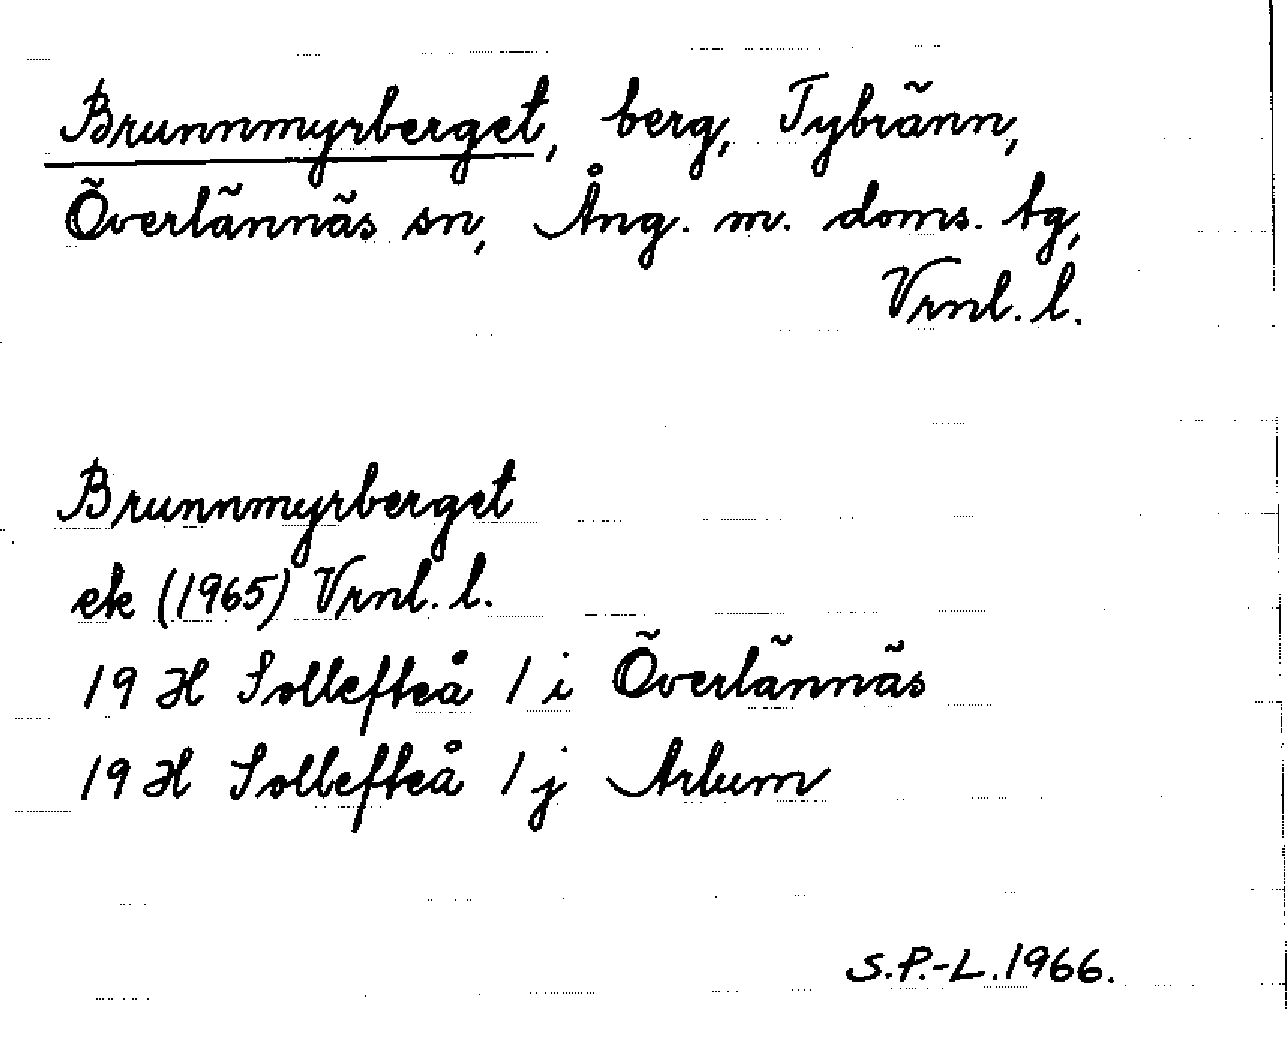 Brunnmyrberget, berg, Tybränn,
Överlännäs sn, Ång. m. doms. tg,
Vrnl. l.
Brunnmyrberget
ek (1965) Vrnl. l.
19 H Sollefteå 1 i Överlännäs
19 H Sollefteå 1 j Arlum
S.P.-L. 1966.